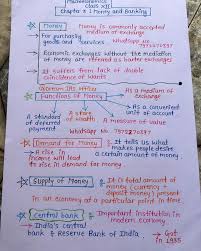 Macroeconomics
Class XII
Chapter 3 : Money and Banking
Money → Money is commonly accepted medium of exchange
→ For purchasing goods and services.
WhatsApp No
→ Economic exchanges without the mediation of money are referred as barter exchanges
→ It suffers from lack of double coincidence of wants
Functions of Money → As a medium of Exchange
→ As a convenient unit of account
A standard of deferred payment
A store of wealth
A measure of value
WhatsApp No.
Demand for Money → It tells us what makes people desire a certain amount of money
→ A rise in income will lead to rise in demand for money.
Supply of Money → It is total amount of money (currency + deposit money) present in an economy at a particular point in time
Central bank → Important institution in modern economy
→ India's central bank = Reserve Bank of India → Got in 1935